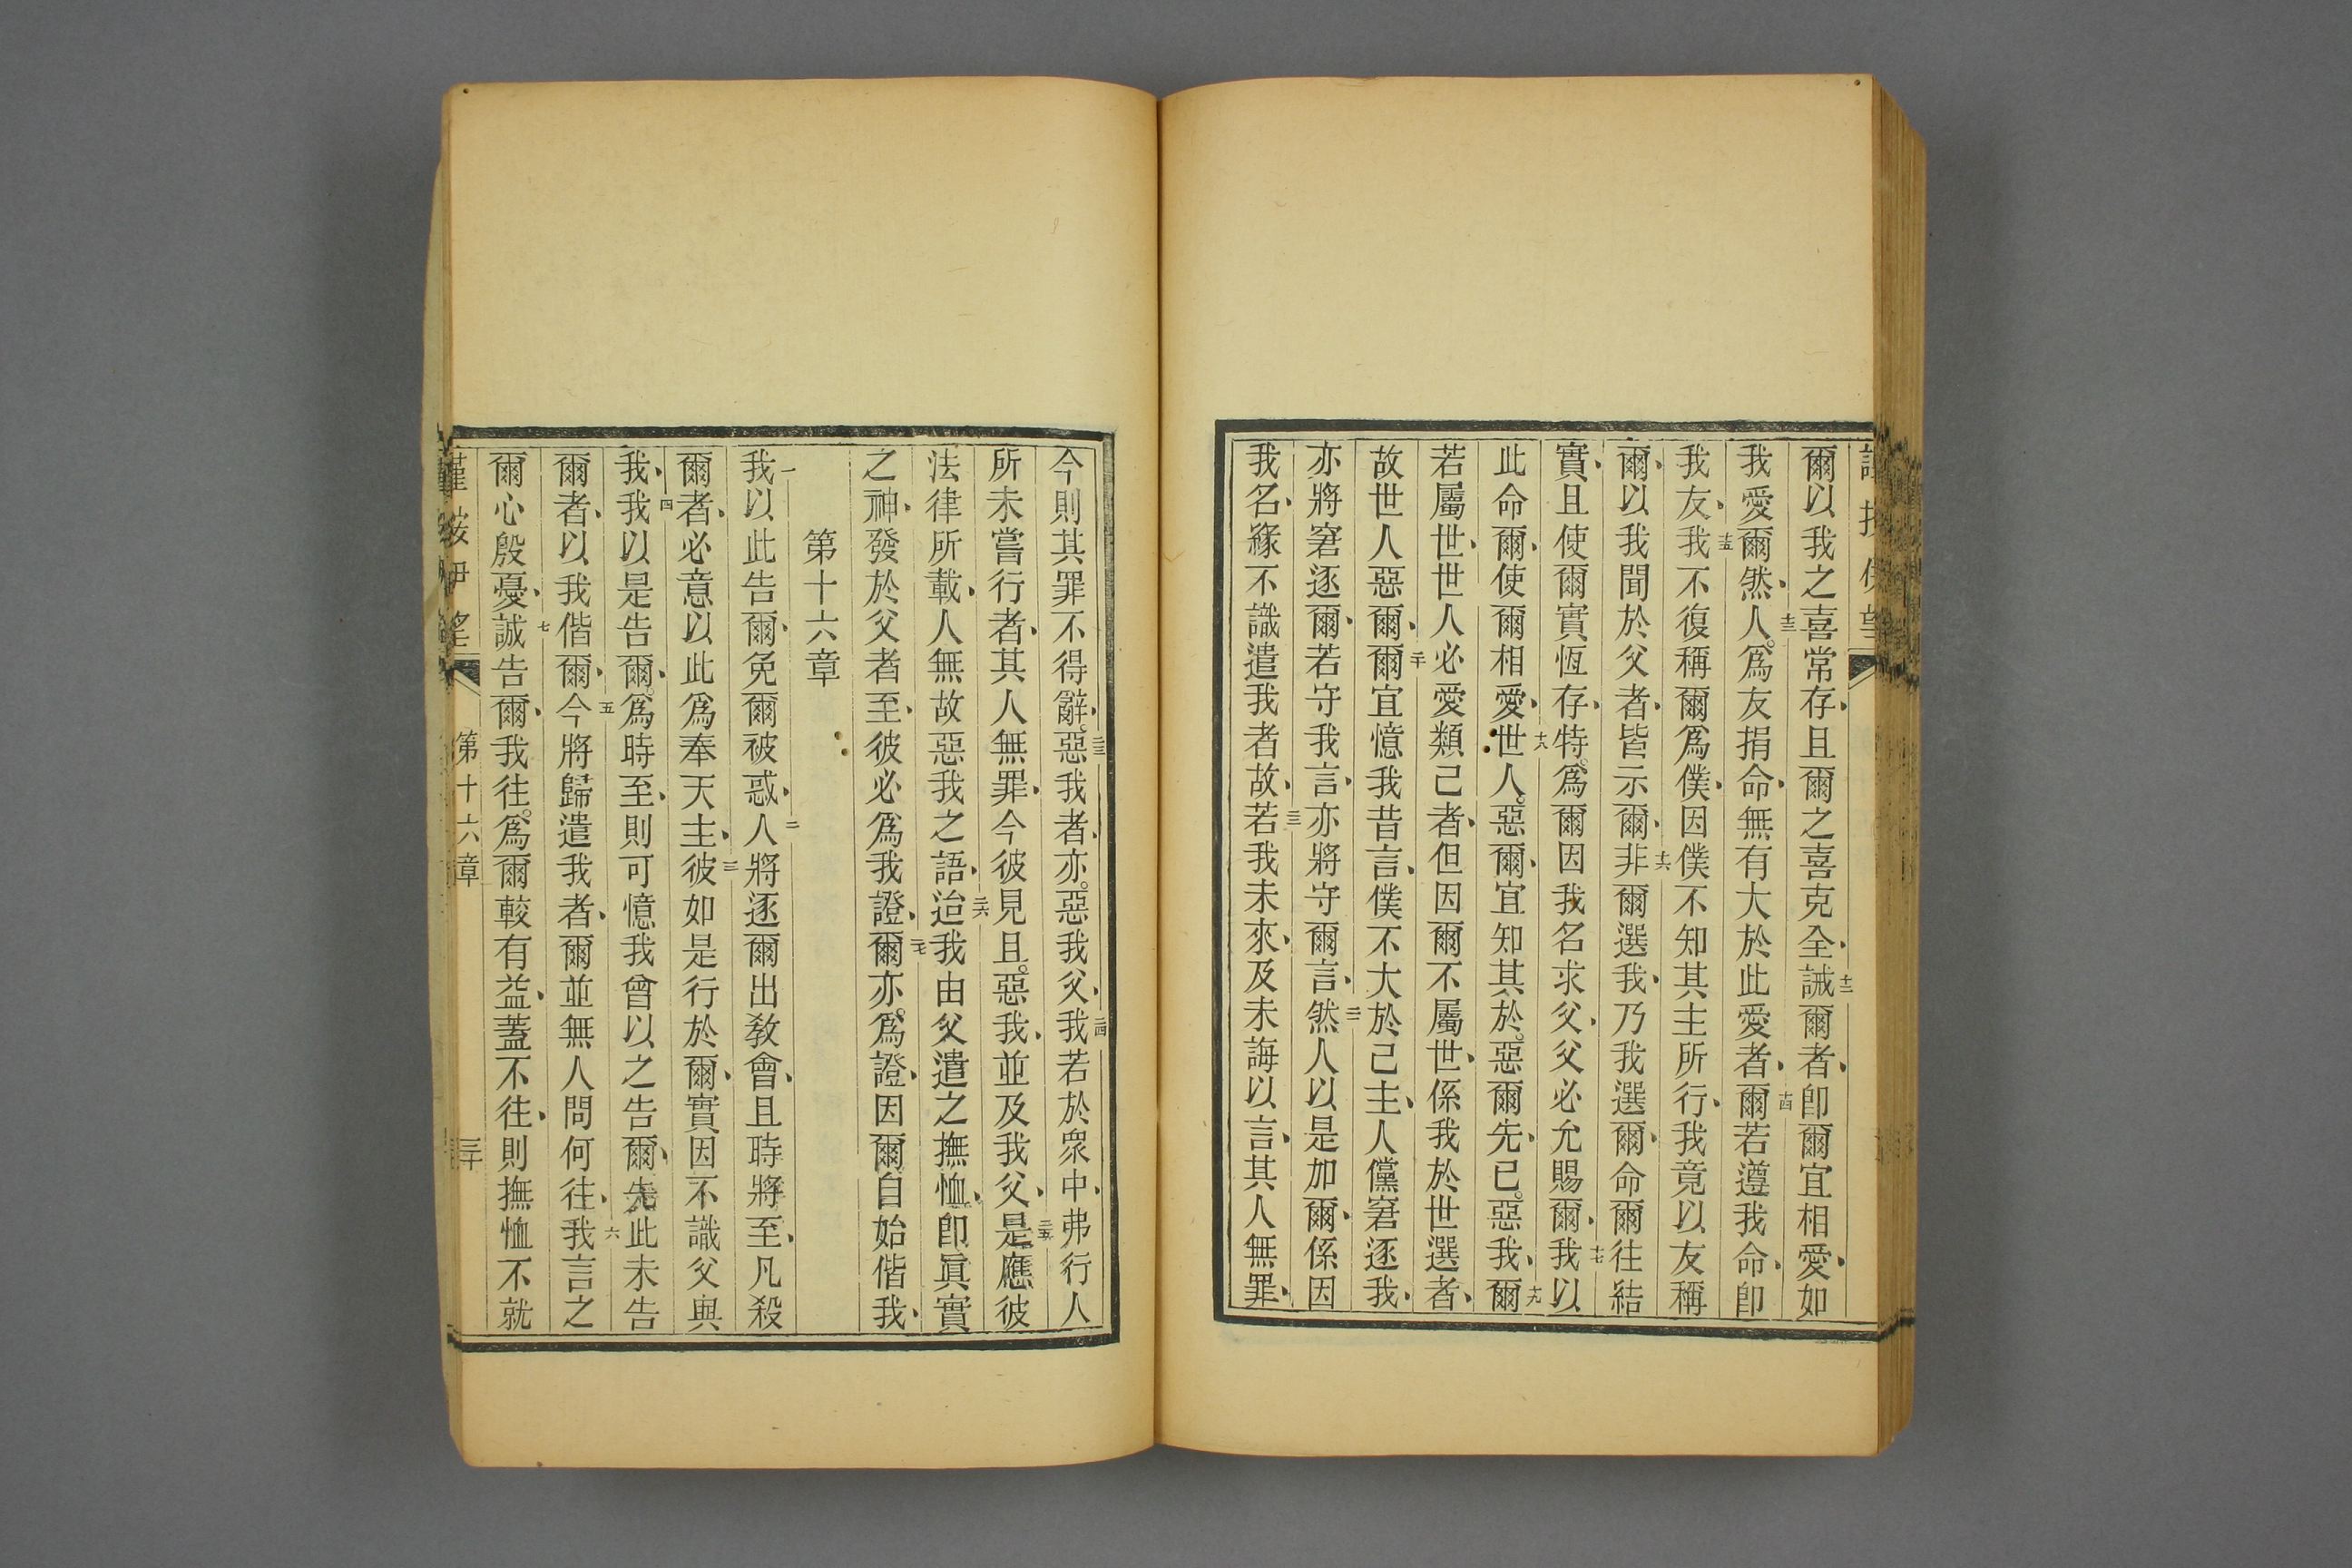 爾以我之喜常存、且爾之喜克全、十二誡爾者、卽爾宜相愛、如
我愛爾然、十三人爲友捐命、無有大於此愛者、十四爾若遵我命、卽
我友、十五我不復稱爾爲僕、因僕不知其主所行、我竟以友稱
爾、以我聞於父者、皆示爾、十六非爾選我、乃我選爾、命爾往結
實、且使爾實恆存、特爲爾因我名求父、父必允賜爾、十七我以
此命爾、使爾相愛、十八世人惡爾、宜知其於惡爾先、已惡我、十九爾
若屬世、世人必愛類己者、但因爾不屬世、係我於世選者、
故世人惡爾、二十爾宜憶我昔言、僕不大於己主、人儻窘逐我、
亦將窘逐爾、若守我言、亦將守爾言、二一然人以是加爾、係因
我名、緣不識遣我者故、二二若我未來、及未誨以言、其人無罪、
今則其罪不得辭、二三惡我者、亦惡我父、二四我若於衆中、弗行人
所未嘗行者、其人無罪、今彼見且惡我、並及我父、二五是應彼
法律所載、人無故惡我之語、二六迨我由父遣之撫恤、卽眞實
之神、發於父者至、彼必爲我證、二七爾亦爲證、因爾自始偕我、
第十六章
一我以此告爾、免爾被惑、二人將逐爾出敎會、且時將至、凡殺
爾者、必意以此爲奉天主、三彼如是行於爾、實因不識父與
我、四我以是告爾、爲時至、則可憶我曾以之告爾、先此未告
爾者、以我偕爾、五今將歸遣我者、爾並無人問何往、六我言之
爾心殷憂、七誠告爾、我往、爲爾較有益、蓋不往、則撫恤不就
第十六章
三十